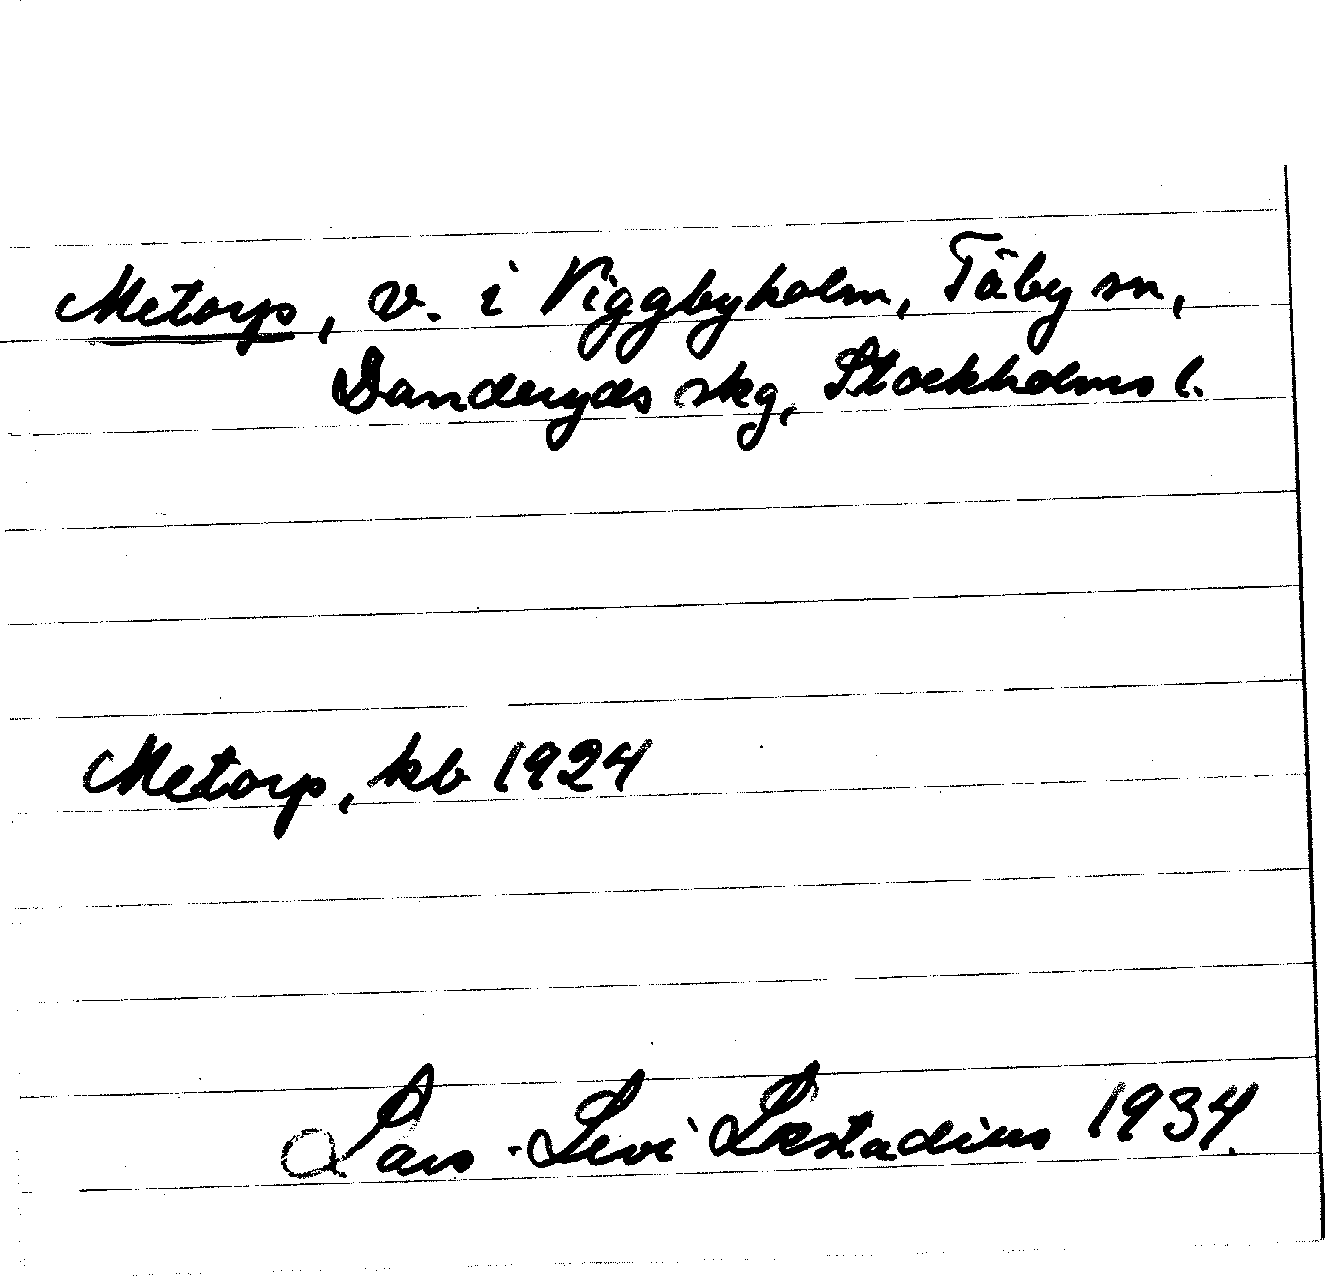 Metorp, v. i Viggbyholm, Täby sn,
Danderyds skg, Stockholms l.
Metorp, kb 1924
Lars-Levi Læstadius 1934.